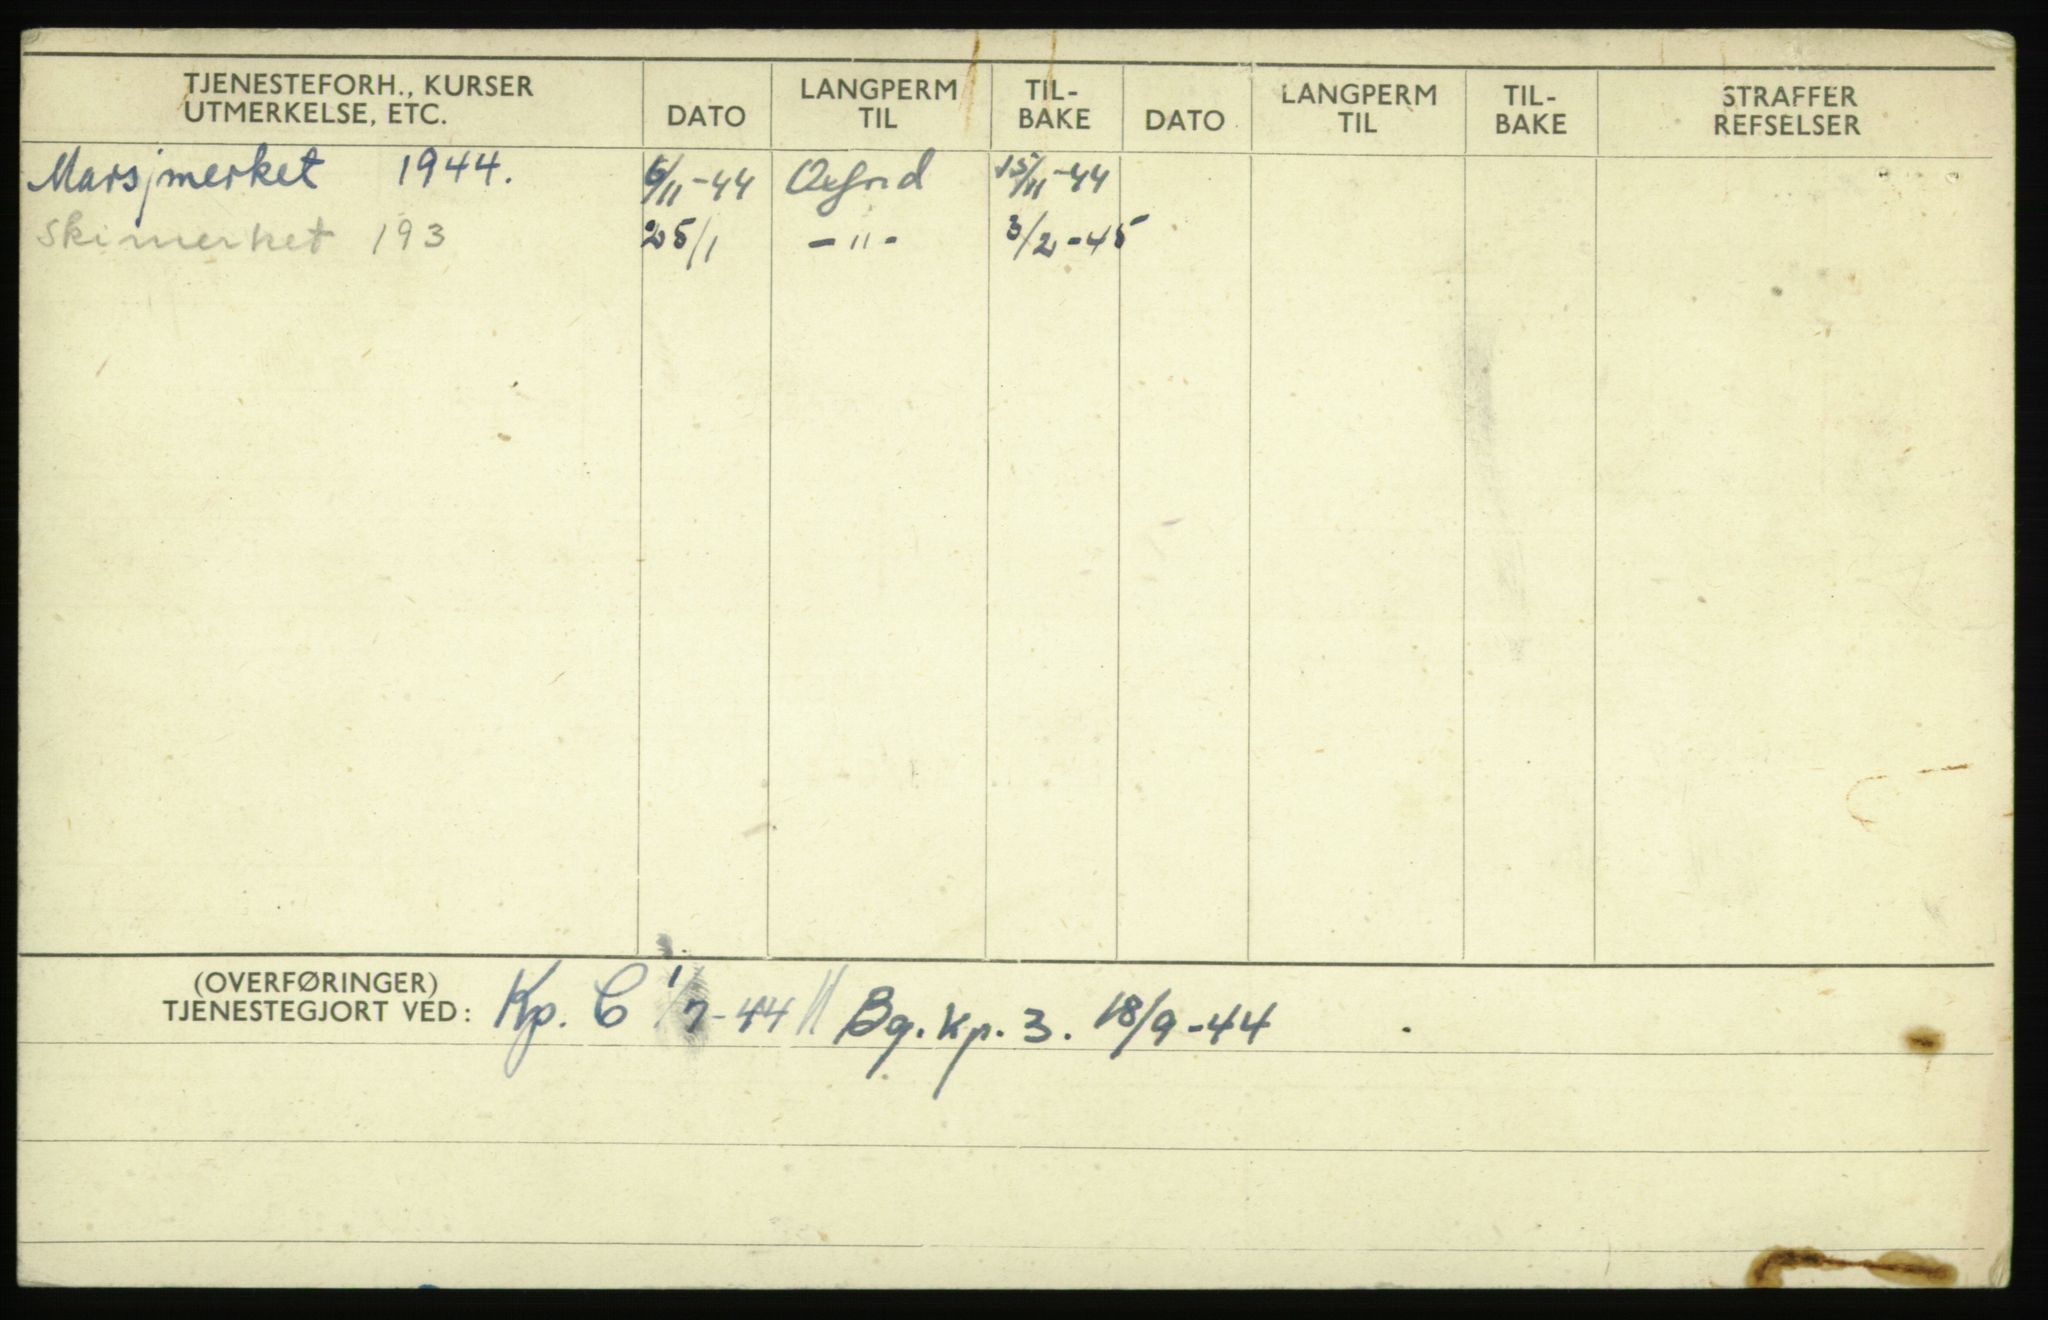 TJENESTEFORH., KURSER UTMERKELSE, ETC. DATO LANGPERM TIL TIL-BAKE DATO LANGPERM TIL TIL-BAKE STRAFFER REFSELSER
Marsjmerket 1944. 6/11-44 Oxford 15/11-44
Skimerket 193 25/1 -"- 3/2-45
(OVERFØRINGER)
TJENESTEGJORT VED: Kp. C 1/7-44 // Bg. Kp. 3. 18/9-44